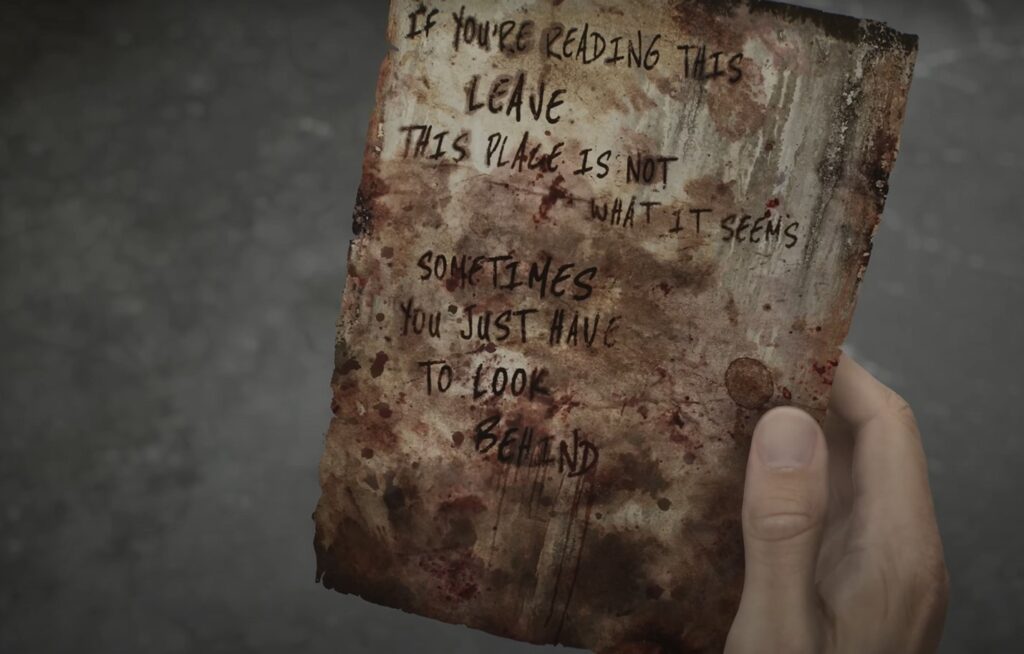 IF YOU'RE READING THIS
LEAVE.
THIS PLACE IS NOT
WHAT IT SEEMS
SOMETIMES
YOU JUST HAVE
TO LOOK
BEHIND